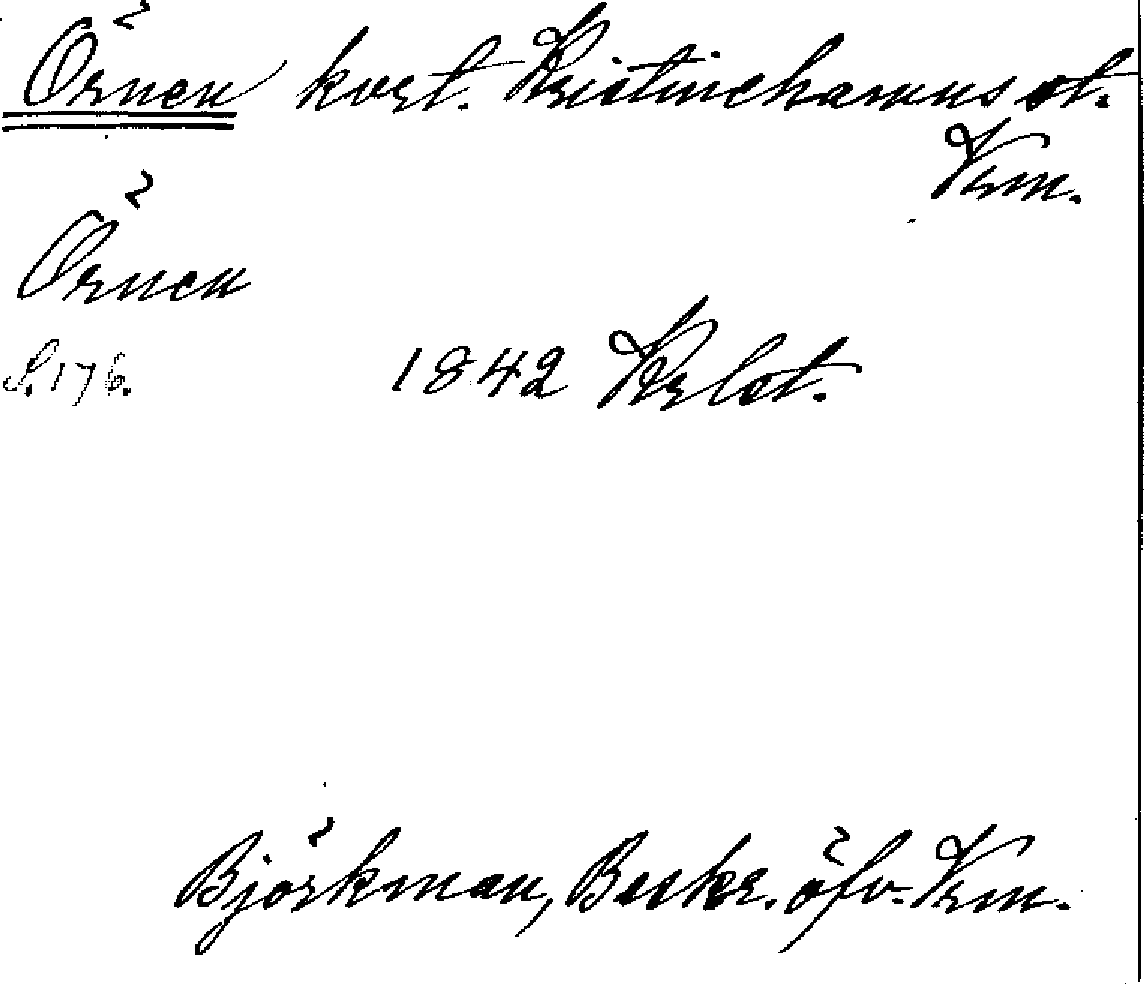 Örnen kvrt. Kristinehamns st.
Vrm.
Örnen
S. 176. 1842 Krlot.
Björkman, Beskr. öfv. Vrm.